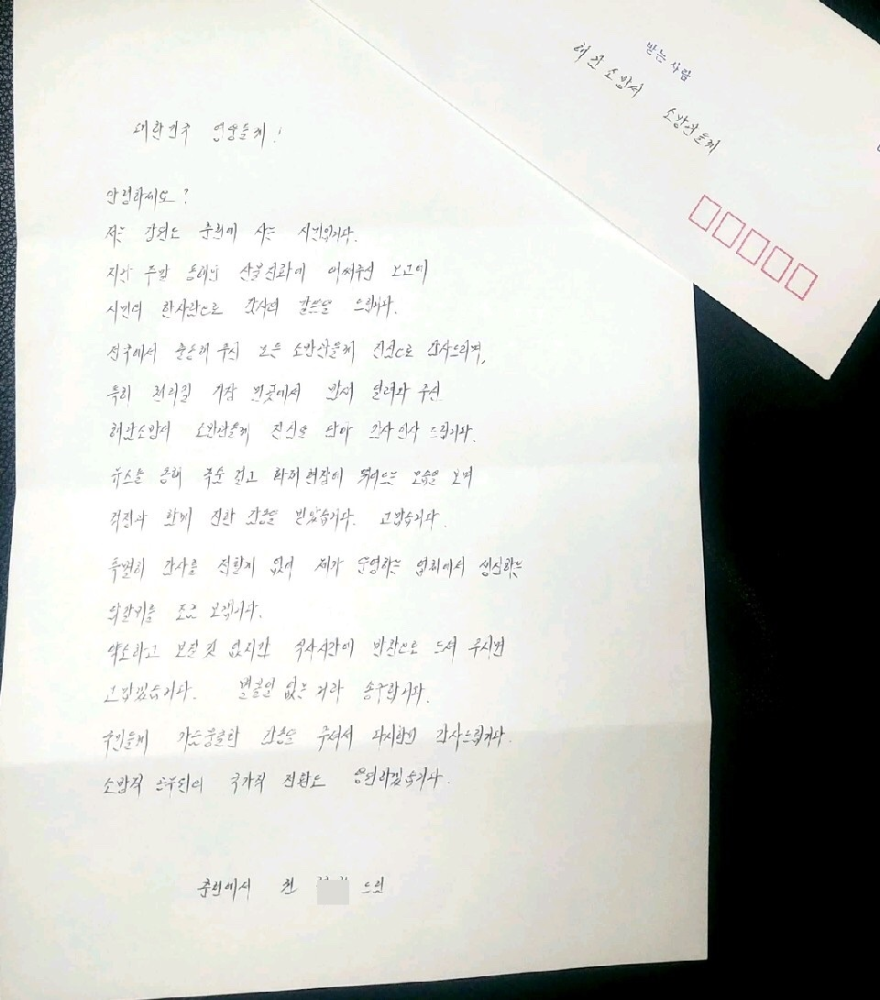 받는사람
해남소방서 소방관들께
대한민국 영웅들께!
안녕하세요?
저는 강원도 춘천에 사는 시민입니다.
지난 주말 동해안 산불진화에 애써주신 노고에
시민의 한사람으로 감사의 말씀을 드립니다.
전국에서 출동해 주신 모든 소방관들께 진심으로 감사드리며,
특히 천리길 가장 먼곳에서 밤새 달려와 주신
해남소방서 소방관들께 진심을 담아 감사 인사 드립니다.
뉴스를 통해 목숨 걸고 화재현장에 뛰어드는 모습을 보며
걱정과 함께 진한 감동을 받았습니다. 고맙습니다.
특별히 감사를 전할게 없어 제가 운영하는 업체에서 생산하는
닭갈비를 조금 보냅니다.
약소하고 보잘것 없지만 식사시간에 반찬으로 드셔 주시면
고맙겠습니다. 별볼일 없는 거라 송구합니다.
국민들께 가슴뭉클한 감동을 주셔서 다시한번 감사드립니다.
소방직 공무원의 국가직 전환도 응원하겠습니다.
춘천에서 드림